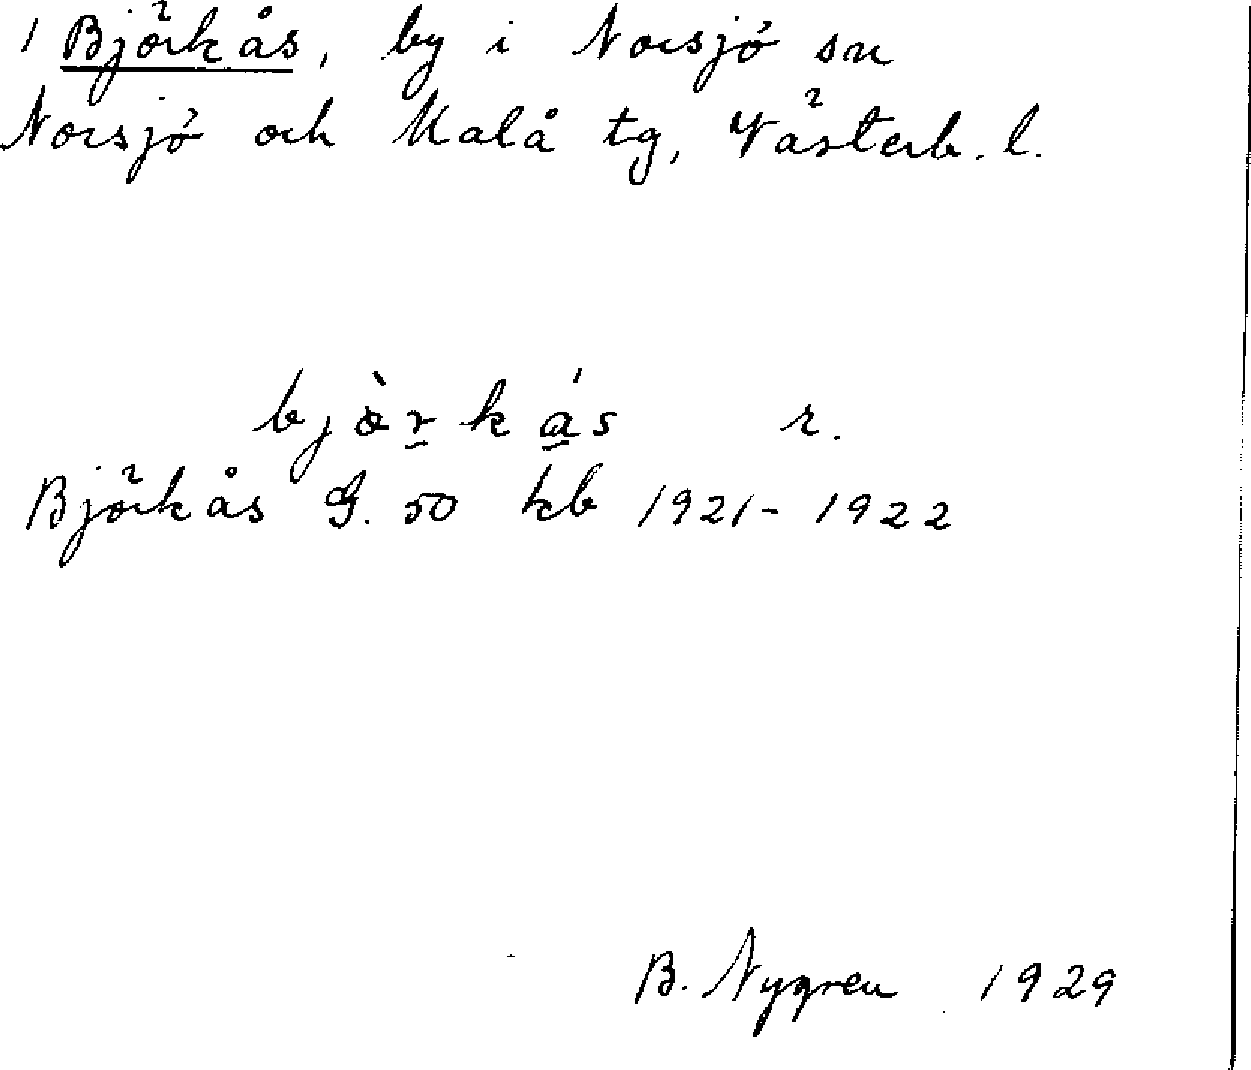 1 Björkås, by i Norsjö sn
Norsjö och Malå tg, Västerb. l.
bjò̱rká̱s r.
Björkås G. 50 kb 1921-1922
B. Nygren 1929